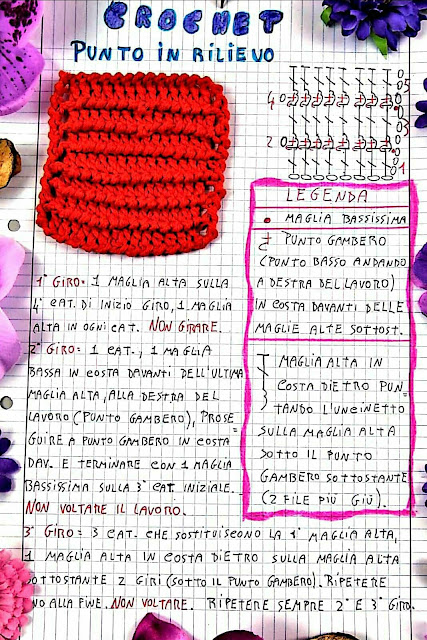 CROCHET
PUNTO IN RILIEVO
5
4
3
2
1
LEGENDA
MAGLIA BASSISSIMA
PUNTO GAMBERO
(PUNTO BASSO ANDANDO
A DESTRA DEL LAVORO)
IN COSTA DAVANTI DELLE
MAGLIE ALTE SOTTOST.
MAGLIA ALTA IN
COSTA DIETRO PUN=
TANDO L'UNCINETTO
SULLA MAGLIA ALTA
SOTTO IL PUNTO
GAMBERO SOTTOSTANTE
(2 FILE PIÙ GIÙ).
1° GIRO= 1 MAGLIA ALTA SULLA
4° CAT. DI INIZIO GIRO, 1 MAGLIA
ALTA IN OGNI CAT. NON GIRARE.
2° GIRO= 1 CAT., 1 MAGLIA
BASSA IN COSTA DAVANTI DELL'ULTIMA
MAGLIA ALTA, ALLA DESTRA DEL
LAVORO (PUNTO GAMBERO), PROSE=
GUIRE A PUNTO GAMBERO IN COSTA
DAV. E TERMINARE CON 1 MAGLIA
BASSISSIMA SULLA 3° CAT. INIZIALE.
NON VOLTARE IL LAVORO.
3° GIRO= 3 CAT. CHE SOSTITUISCONO LA 1° MAGLIA ALTA,
1 MAGLIA ALTA IN COSTA DIETRO SULLA MAGLIA ALTA
SOTTOSTANTE 2 GIRI (SOTTO IL PUNTO GAMBERO). RIPETERE
NO ALLA FINE. NON VOLTARE. RIPETERE SEMPRE 2° E 3° GIRO.